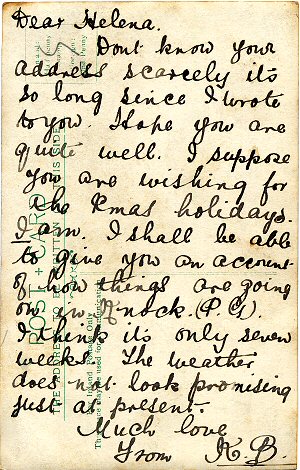 Dear Helena.
Dont know your
address scarcely its
so long since I wrote
to you. Hope you are
quite well. I suppose
you are wishing for
the Xmas holidays.
I am. I shall be able
to give you an account
of how things are going
on in K-nock. (P. G).
I think its only seven
weeks. The weather
does not look promising
just at present.
Much love
From K. B.
POST + CARD
THE ADDRESS TO BE WRITTEN ON THIS SIDE